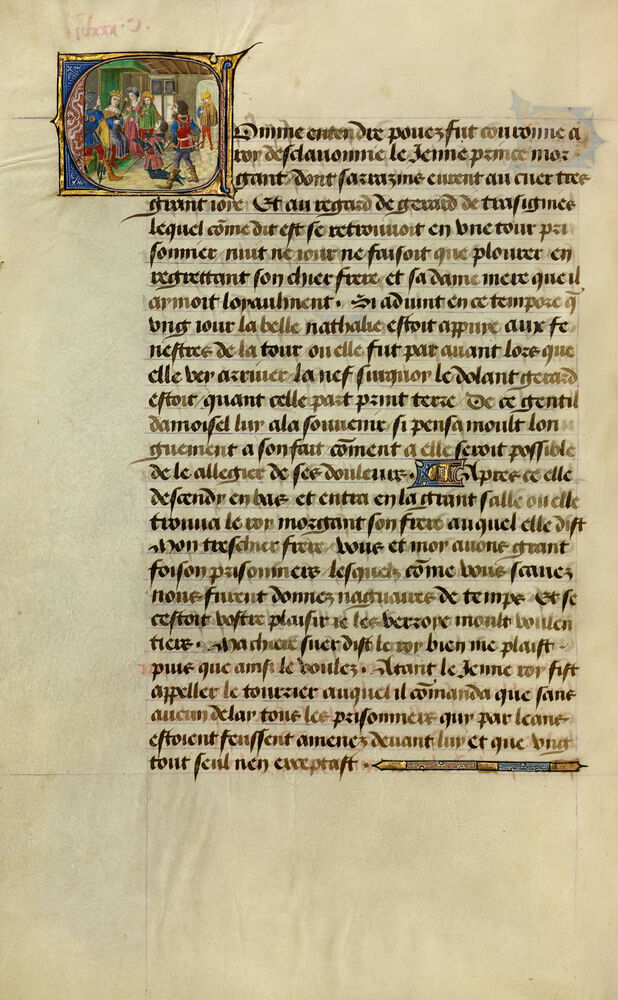 C. xxxvi
Comme entendre pouez fut couronne a
roy desclauonnie le Jenne prince mor-
gant dont sarrazins eurent au cuer tres
grant ioye / Et au regard de gerard de trasignies
lequel cōme dit est se retrouuoit en vne tour pri
sonnier / nuit ne iour ne faisoit que plourer / en
regrettant son chier frere / et sa dame mere que il
aymoit loyaulment . Si aduint en ce tempore q̄
vng iour la belle nathalie estoit appuye aux fe-
nestres de la tour ou elle fut par auant lors que
elle vey arriuer la nef surquoy le dolant gerard
estoit / quant celle part print terre / De ce gentil
damoisel luy ala souuenir / si pensa moult lon
guement a son fait cōment a elle seroit possible
de le allegier de ses douleurs . Apres ce elle
descendy en bas / et entra en la grant salle ou elle
trouua le roy morgant son frere / auquel elle dist
Mon treschier frere / vous et moy auons grant
foison prisonniers / lesquelz cōme vous scauez
nous furent donnez naguaires de temps / Et se
cestoit vostre plaisir ie les verroye moult voulen
tiers . Ma chiere suer dist le roy bien me plaist -
puis que ainsi le voulez . Atant le Jenne roy fist
appeller le tourrier auquel il cōmanda que sans
aucun delay tous les prisonniers quy par leans
estoient feussent amenez deuant luy et que vng
tout seul nen exceptast .